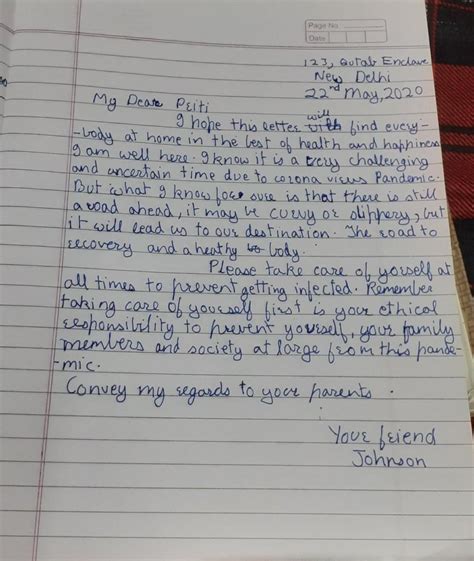 Page No.
Date
123, Qutab Enclave
New Delhi
22nd May, 2020
My Dear Priti
will
I hope this letter find every-
-body at home in the best of health and happiness
I am well here. I know it is a very challenging
and uncertain time due to corona virus Pandemic.
But what I know for sure is that there is still
a road ahead, it may be curvy or slippery, but
it will lead us to our destination. The road to
recovery and a heathy body.
Please take care of yourself at
all times to prevent getting infected. Remember
taking care of yourself first is your ethical
responsibility to prevent yourself, your family
members and society at large from this pande-
-mic.
Convey my regards to your parents.
Your friend
Johnson